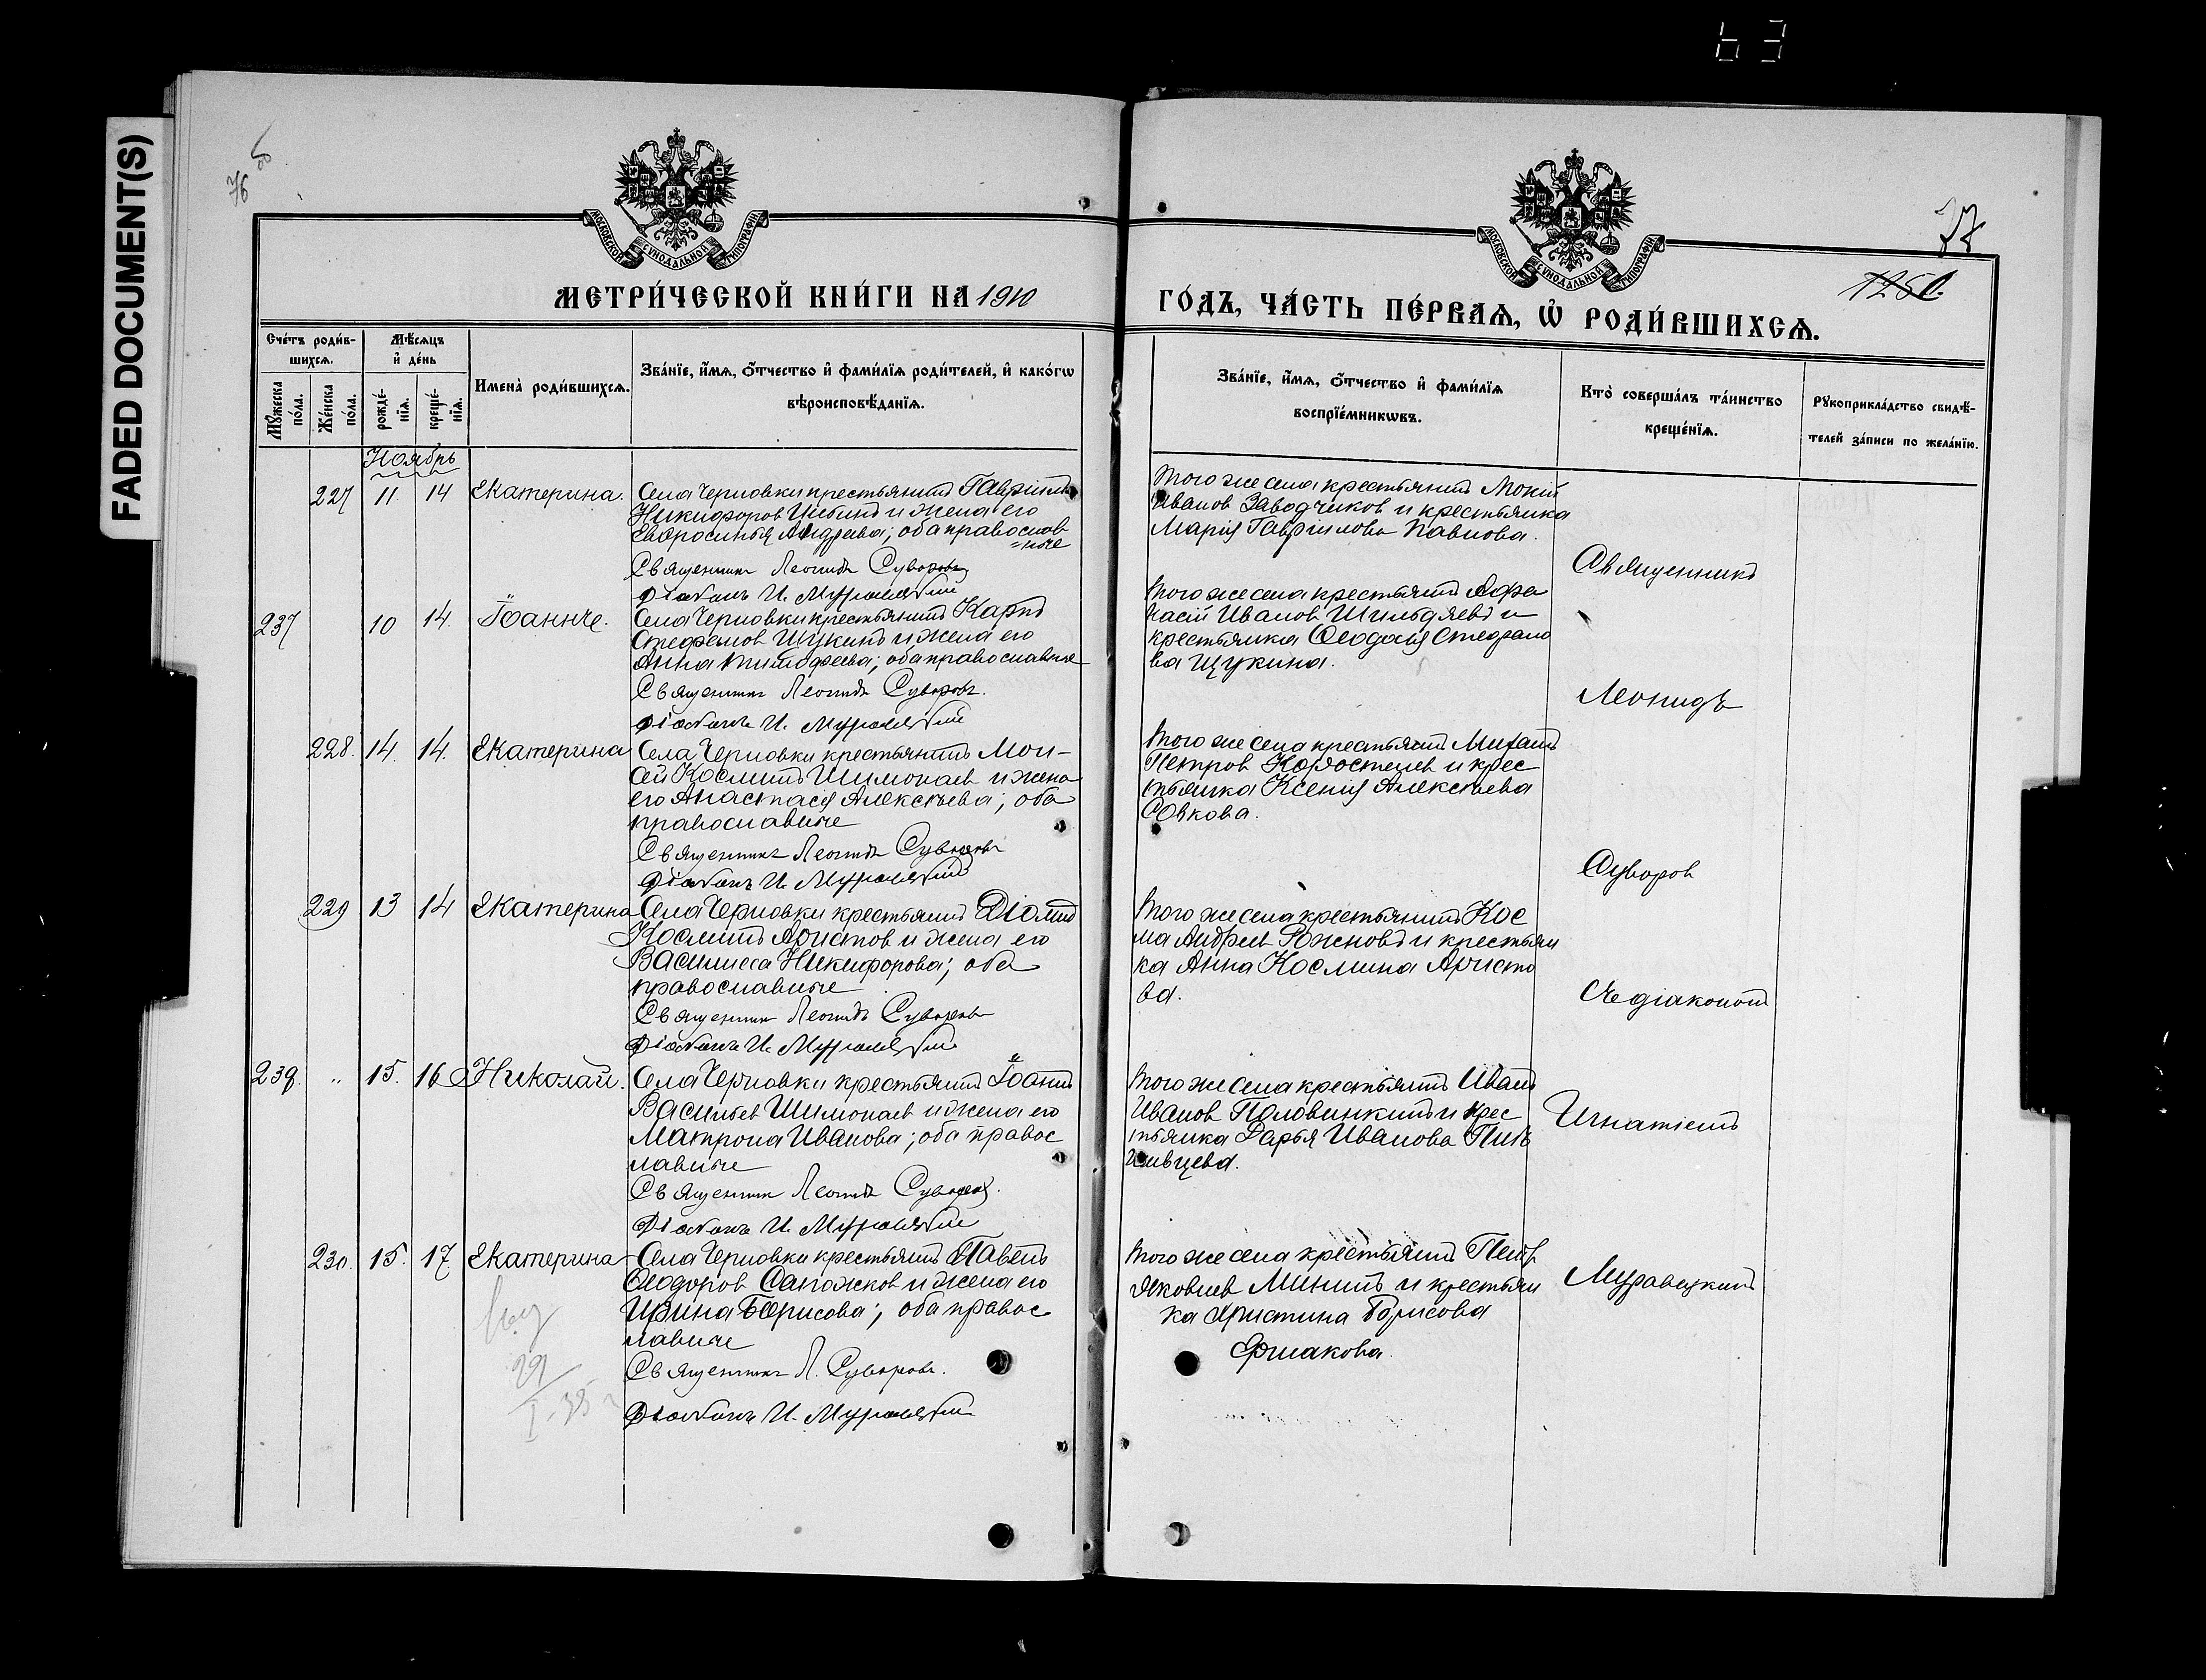 63
FADED DOCUMENT(S)
76
77
МОСКОВСКОЙ СѴНОДАЛЬНОЙ ТИПОГРАФІИ
МОСКОВСКОЙ СѴНОДАЛЬНОЙ ТИПОГРАФІИ
1250
МЕТРИ́ЧЕСКОЙ КНИ́ГИ НА 1910
ГО́ДЪ, ЧА́СТЬ ПЕ́РВАѦ, Ѡ҆ РОДИ́ВШИХСѦ.
Сче́тъ роди́в-
шихсѧ.
Мѣ́сѧцъ
и҆ де́нь
Мꙋ́жеска
по́ла.
Же́нска
по́ла.
рожде́-
нїѧ.
креще́-
нїѧ.
Имена̀ роди́вшихсѧ.
Зва́нїе, и҆́мѧ, ѻ҆́тчество и҆ фами́лїѧ роди́телей, и҆ како́гѡ
вѣроисповѣ́данїѧ.
Зва́нїе, и҆́мѧ, ѻ҆́тчество и҆ фами́лїѧ
воспрїе́мникѡвъ.
Кто̀ соверша́лъ та́инство
креще́нїѧ.
Рꙋкоприкла́дство свидѣ́-
телей за́писи по жела́нїю.
Ноябрь
227 11. 14 Екатерина. Села Черновки крестьянинъ Гавріилъ
Никифоров и жена его
Евфросинья Андреева; оба православ-
ные
Священникъ Леонидъ Суворовъ
Діаконъ И. Муравецкій
Того же села крестьянинъ Мокій
Иванов Заводчиков и крестьянка
Марія Гавріилова Павлова.
237 10 14. Іоаннъ. Села Черновки крестьянинъ Карпъ
Стефанов Щукинъ и жена его
Анна Тимофеева; оба православные
Священникъ Леонидъ Суворовъ.
Діаконъ И. Муравецкій
Того же села крестьянинъ Афа
насій Иванов Шильдяевъ и
крестьянка Ѳеодосія Стефано
ва Щукина.
228. 14. 14. Екатерина Села Черновки крестьянинъ Мои-
сей Косминъ Шимонаев и жена
его Анастасія Алексѣева; оба
православные
Священникъ Леонидъ Суворовъ
Діаконъ И. Муравецкій
Того же села крестьянинъ Михаилъ
Петров Коростелев и крес
тьянка Ксенія Алексѣева
Совкова.
229 13 14 Екатерина Села Черновки крестьянинъ Діомид
Косминъ Аристов и жена его
Василисса Никифорова; оба
православные
Священникъ Леонидъ Суворовъ
Діаконъ И. Муравецкій
Того же села крестьянинъ Кос
ма Андреев Рожновъ и крестьян
ка Анна Космина Аристо
ва.
238. " 15. 16 Николай. Села Черновки крестьянинъ Іоаннъ
Васильев Шимонаев и жена его
Матрона Иванова; оба правос
лавные
Священникъ Леонидъ Суворовъ.
Діаконъ И. Муравецкій
Того же села крестьянинъ Иванъ
Иванов Половинкинъ и крес
тьянка Дарья Иванова
230. 15. 17 Екатерина Села Черновки крестьянинъ Павелъ
Ѳеодоров Сапожков и жена его
Ирина Борисова; оба правос
лавные
Священникъ Л. Суворовъ.
Діаконъ И. Муравецкій
Того же села крестьянинъ Петр
Яковлев Мининъ и крестьян
ка Христина Борисова
Ермакова.
Священникъ
Леонидъ
Суворов
Съ діакономъ
Игнатіемъ
Муравецкимъ